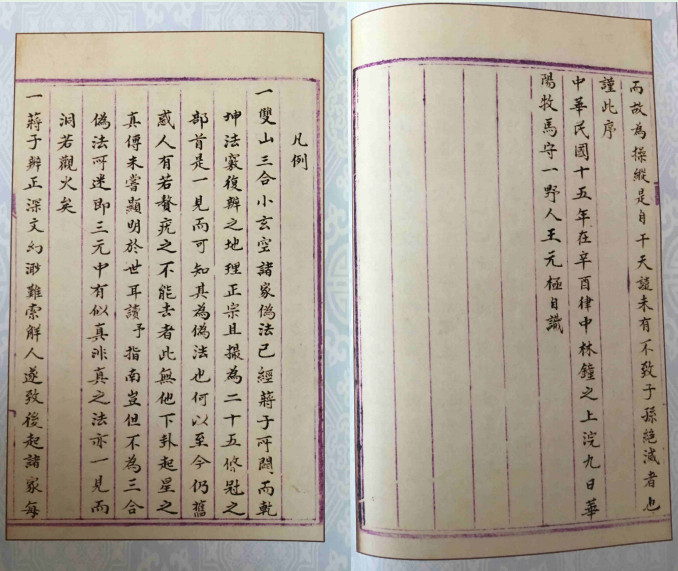 而故為操縱是自干天譴未有不致子孫絕滅者也
謹此序
中華民國十五年在辛酉律中林鐘之上浣九日華
陽牧馬守一野人王元極自識
凡例
一雙山三合小玄空諸家偽法已經蔣子所闢而乾
坤法竅復辨之地理正宗且撮為二十五條冠之
部首是一見而可知其為偽法也何以至今仍蠱
惑人有若贅疣之不能去者此無他下卦起星之
真傳未嘗顯明於世耳讀予指南豈但不為三合
偽法所迷即三元中有似真非真之法亦一見而
洞若觀火矣
一蔣子辨正深文幻渺難索解人遂致後起諸家每